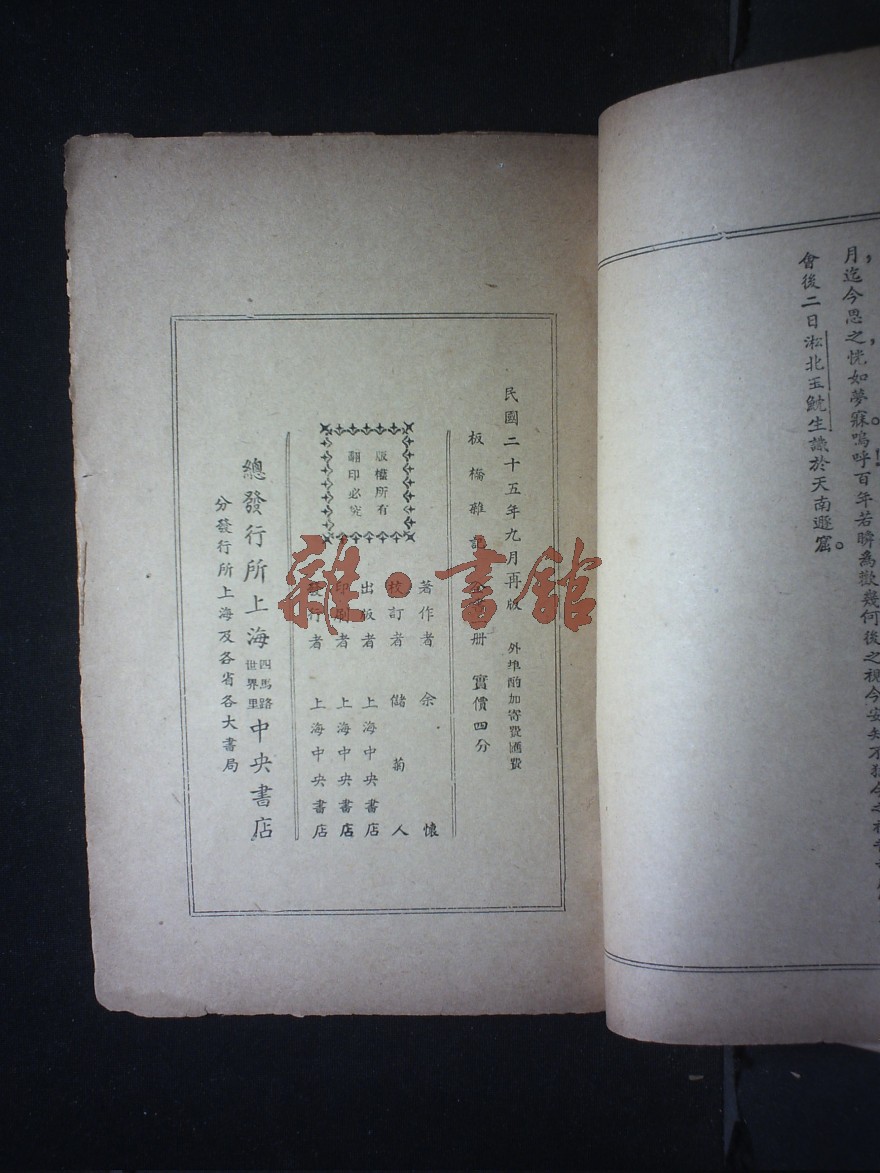 月迄今思之恍如夢寐。嗚呼！百年若瞬為歡幾何後之視今安知不猶今之視昔
會後二日淞北玉魫生識於天南遯窟。
民國二十五年九月再版
外埠酌加寄費匯費
板橋雜記
冊 實價四分
著作者 余懷
校訂者 儲菊人
出版者 上海中央書店
印刷者 上海中央書店
發行者 上海中央書店
版權所有
翻印必究
總發行所上海四馬路世界里中央書店
分發行所上海及各省各大書局
雜·書館